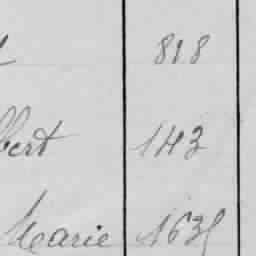 818
bert 143
Marie 1635